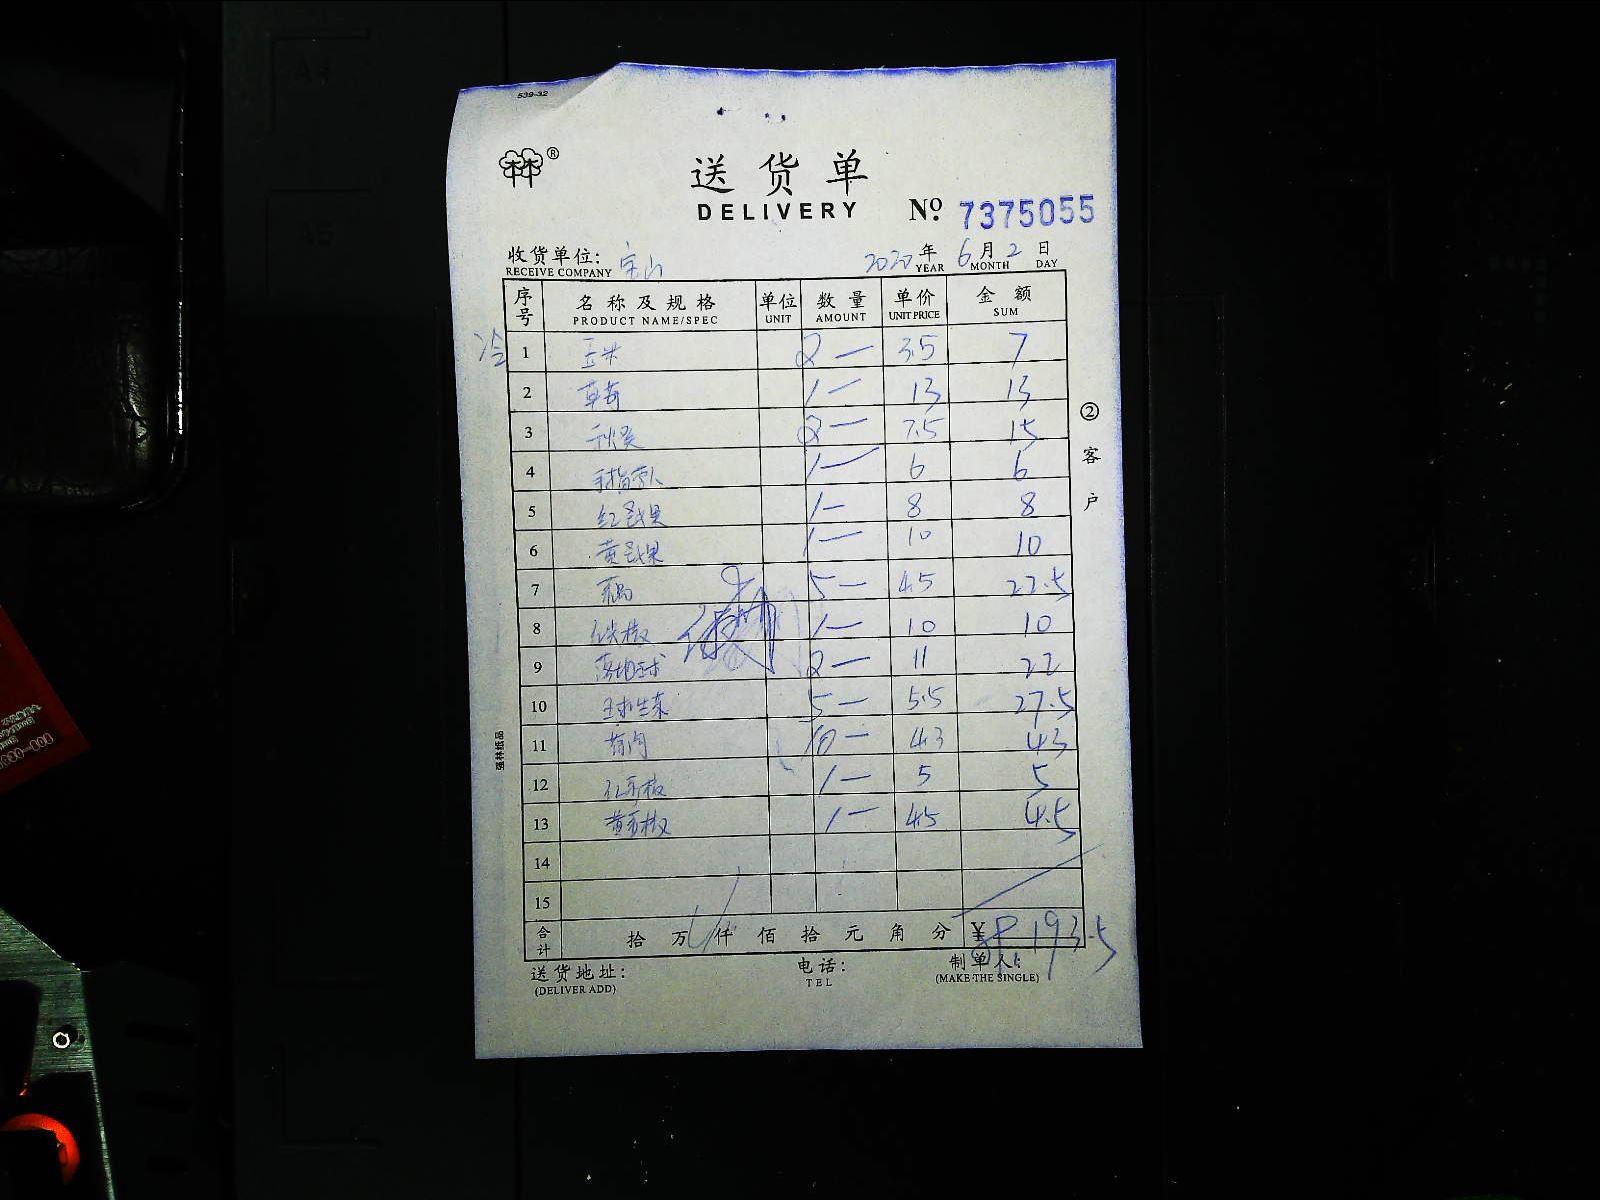 539-32
林®
送货单
DELIVERY
№ 7375055
收货单位: 宝山
RECEIVE COMPANY
2020 年 6 月 2 日
YEAR MONTH DAY
序号 名称及规格 单位 数量 单价 金额
PRODUCT NAME/SPEC UNIT AMOUNT UNIT PRICE SUM
冷 1 玉米 2 — 3.5 7
2 草莓 1 — 13 13
3 秋葵 2 — 7.5 15
4 手指 1 — 6 6
5 红 果 1 — 8 8
6 黄 果 1 — 10 10
7 5 — 4.5 22.5
8 椒 1 — 10 10
9 2 — 11 22
10 球生菜 5 — 5.5 27.5
11 10 — 4.3 43
12 红 椒 1 — 5 5
13 黄 椒 1 — 4.5 4.5
14
15
合计 拾 万 仟 佰 拾 元 角 分 ¥ 193.5
送货地址: 电话: 制单人:
(DELIVER ADD) TEL (MAKE THE SINGLE)
②客户
强林纸品